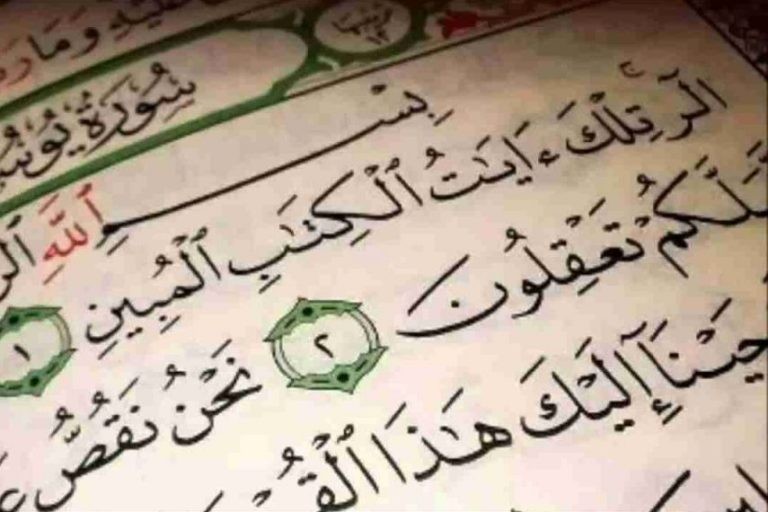 وَمَا
سُورَةُ يُوسُ
بِسْمِ ٱللَّهِ ٱلر
الٓر تِلْكَ ءَايَٰتُ ٱلْكِتَٰبِ ٱلْمُبِينِ ١
لَّكُمْ تَعْقِلُونَ ٢ نَحْنُ نَقُصُّ عَ
حَيْنَآ إِلَيْكَ هَٰذَا ٱلْقُرْ